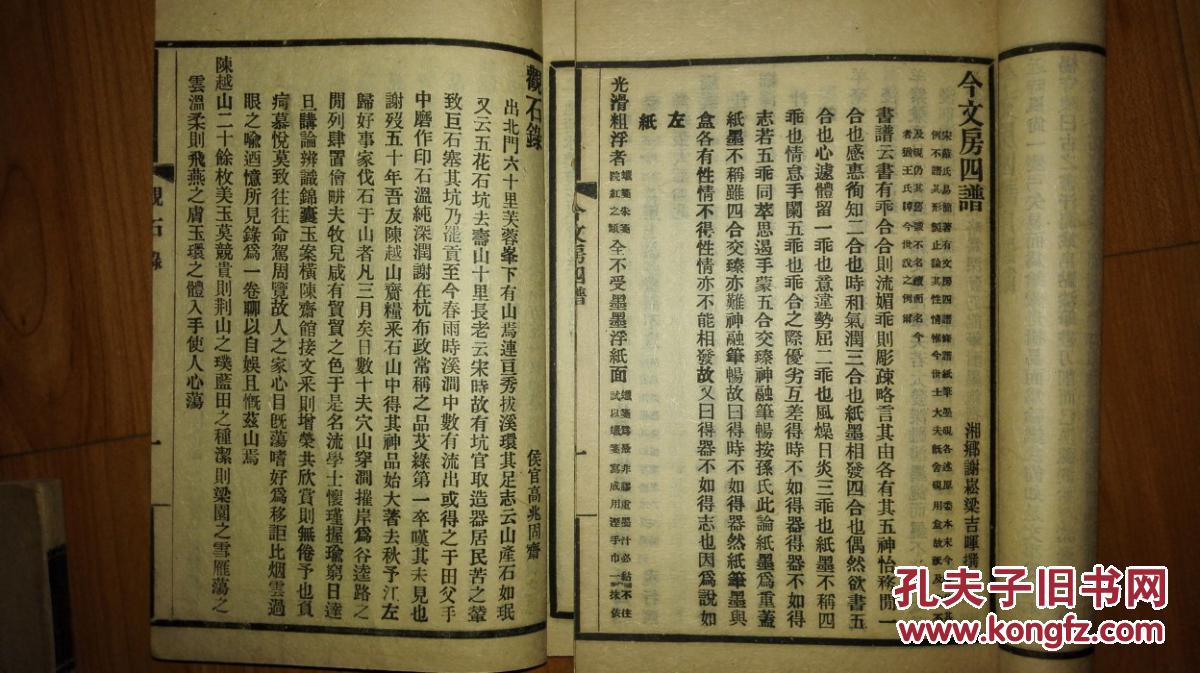 今文房四譜
湘鄉謝崧梁吉暉撰
書譜云書有乖合合則流媚乖則彫疎略言其由各有其五神怡務閒一
合也感惠徇知二合也時和氣潤三合也紙墨相發四合也偶然欲書五
合也心遽體留一乖也意違勢屈二乖也風燥日炎三乖也紙墨不稱四
乖也情怠手闌五乖也乖合之際優劣互差得時不如得器得器不如得
志若五乖同萃思遏手蒙五合交臻神融筆暢按孫氏此論紙墨爲重蓋
紙墨不稱雖四合交臻亦難神融筆暢故曰得時不如得器然紙筆墨與
盒各有性情不得性情亦不能相發故又曰得器不如得志也因爲說如
左
紙
光滑粗浮者蠟箋朱箋院紅之類全不受墨墨浮紙面蠟箋爲最非膠重墨汁必粘滯不住試以蠟箋寫成用溼手巾一抹依
今文房四譜
一
觀石錄
侯官高兆固齋
出北門六十里芙蓉峯下有山焉連亘秀拔溪環其足志云山產石如珉
又云五花石坑去壽山十里長老云宋時故有坑官取造器居民苦之輦
致巨石塞其坑乃罷貢至今春雨時溪澗中數有流出或得之于田父手
中磨作印石溫純深潤謝在杭布政常稱之品艾綠第一卒嘆其未見也
謝歿五十年吾友陳越山齎糧采石山中得其神品始大著去秋予江左
歸好事家伐石于山者凡三月矣日數十夫穴山穿澗摧岸爲谷逵路之
閒列肆置儈畊夫牧兒咸有貿貿之色于是名流學士懷瑾握瑜窮日達
旦講論辨識錦囊玉案橫陳齋館接文采則增榮共欣賞則無倦予也負
疴慕悅莫致往往命駕周覽故人之家心目旣蕩嗜好爲移詎比烟雲過
眼之喻迺憶所見錄爲一卷聊以自娛且慨茲山焉
陳越山二十餘枚美玉莫競貴則荆山之璞藍田之種潔則梁園之雪雁蕩之
雲溫柔則飛燕之膚玉環之體入手使人心蕩
觀石錄
一
孔夫子旧书网
www.kongfz.com